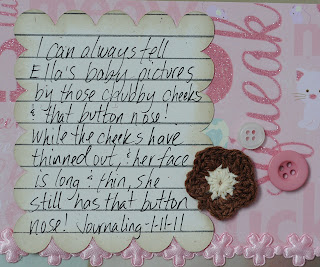 I can always tell
Ella's baby pictures
by those chubby cheeks
& that button nose!
While the cheeks have
thinned out, & her face
is long & thin, she
still has that button
nose! Journaling-1-11-11
squeak